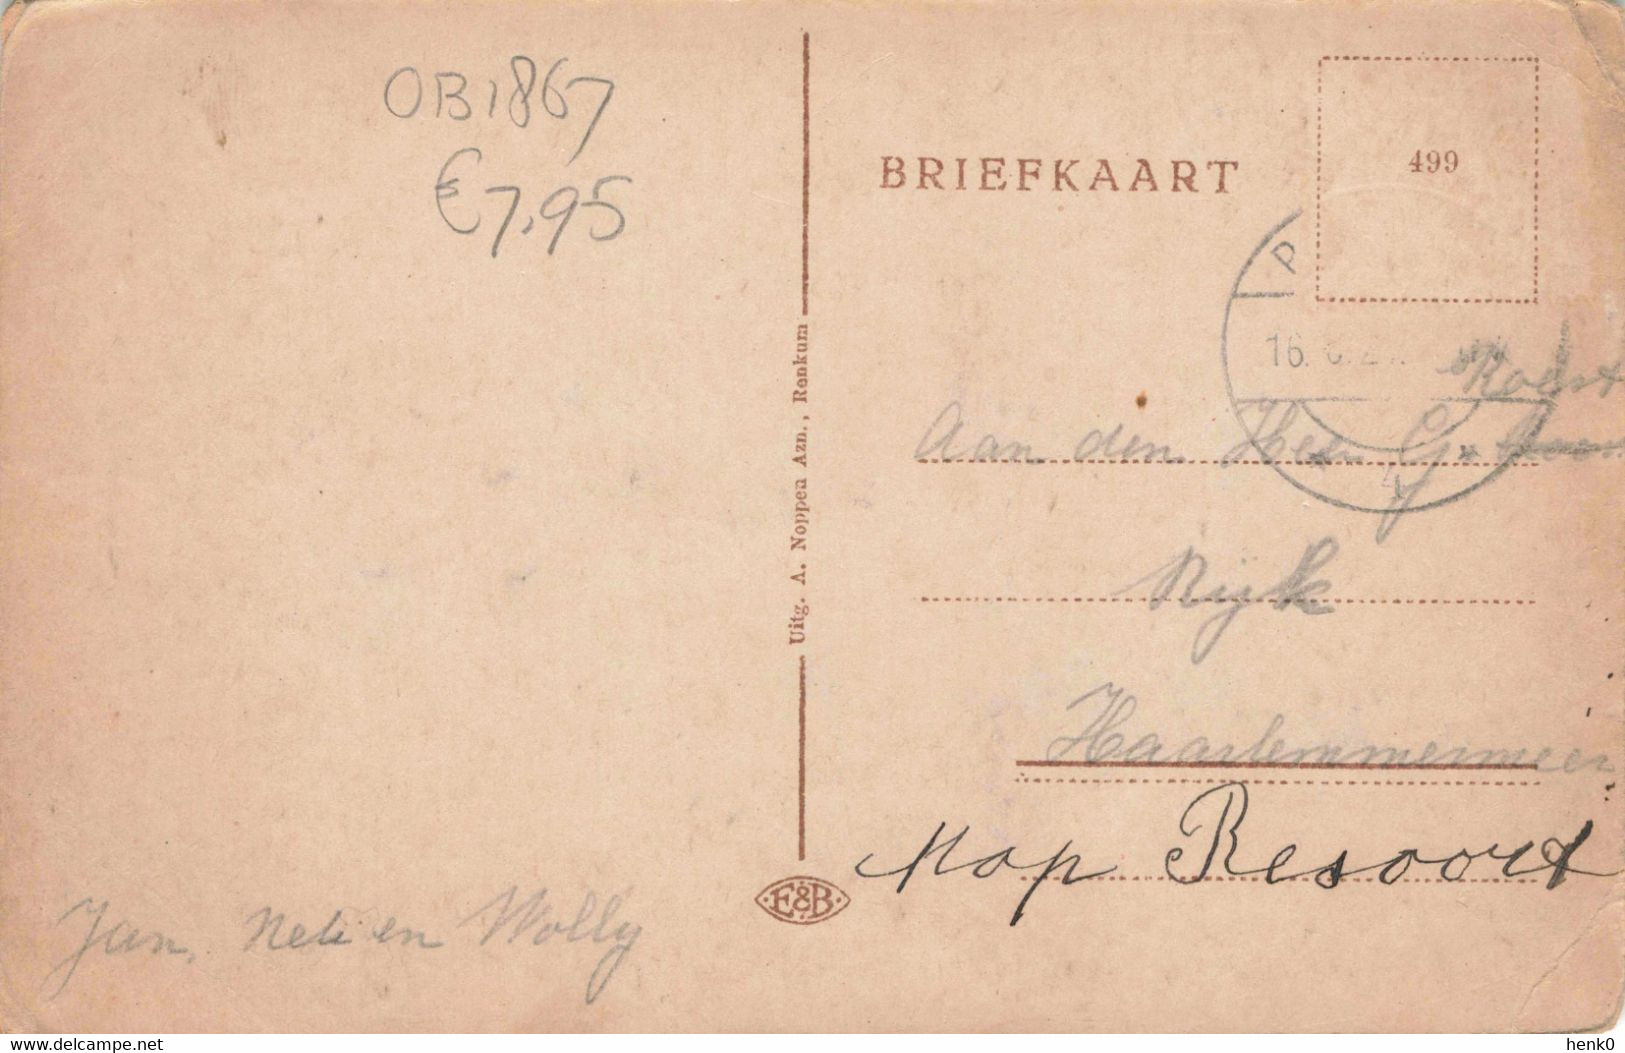 OB1867
€7,95
BRIEFKAART
499
P
16.
4
Uitg. A. Noppen Azn., Renkum
Aan den Heer G.
Rijk
Haarlemmermeer
Nop Resoort
E&B
Jan, Neli en Wolly
delcampe.net
henk0